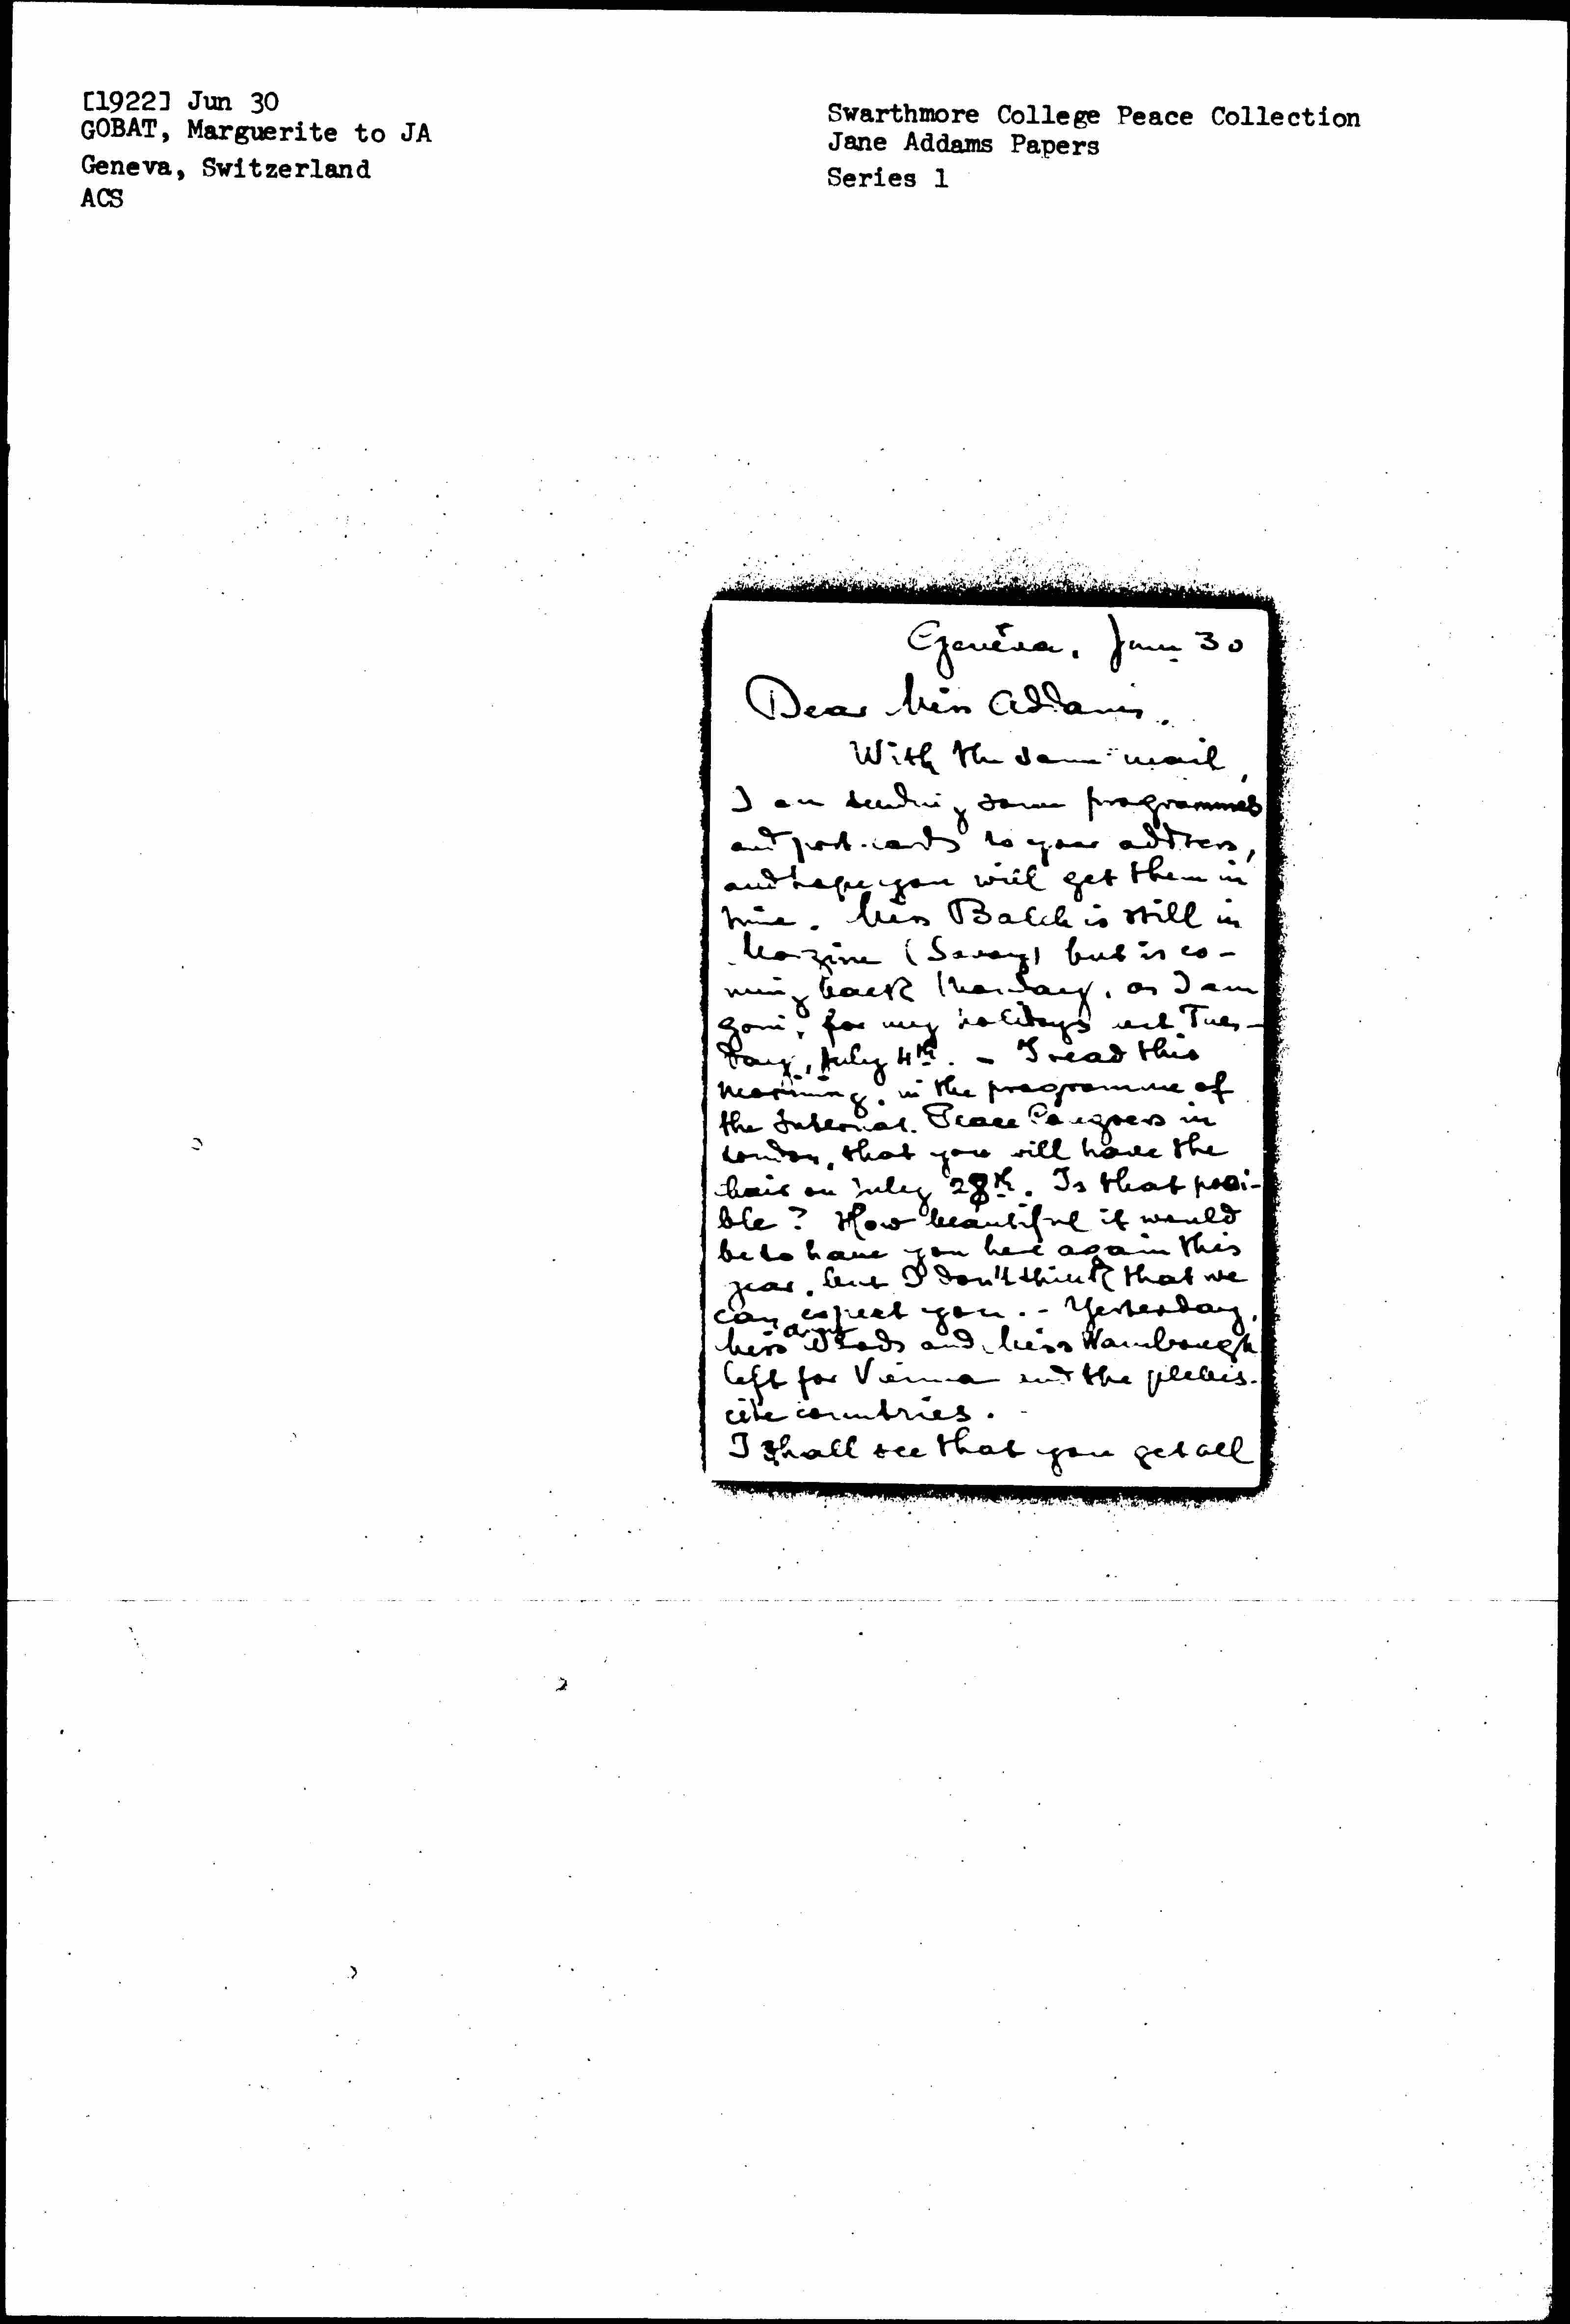 [1922] Jun 30
GOBAT, Marguerite to JA
Geneva, Switzerland
ACS
Swarthmore College Peace Collection
Jane Addams Papers
Series 1
Genèva, June 30
Dear Miss Addams.
With the same mail,
I am sending some programmes
and post-cards to your address,
and hope you will get them in
time. Miss Balch is still in
Morzine (Savoy) but is co-
ming back Monday, as I am
going for my holidays next Tues-
day, July 4th. - I read this
morning, in the programme of
the Internat. Peace Congress in
London, that you will have the
chair on July 28th. Is that possi-
ble? How beautiful it would
be to have you here again this
year, but I don't think that we
can expect you. - Yesterday,
Miss Woods and Miss Wambough
left for Vienna and the plebis-
cite countries.
I shall see that you get all